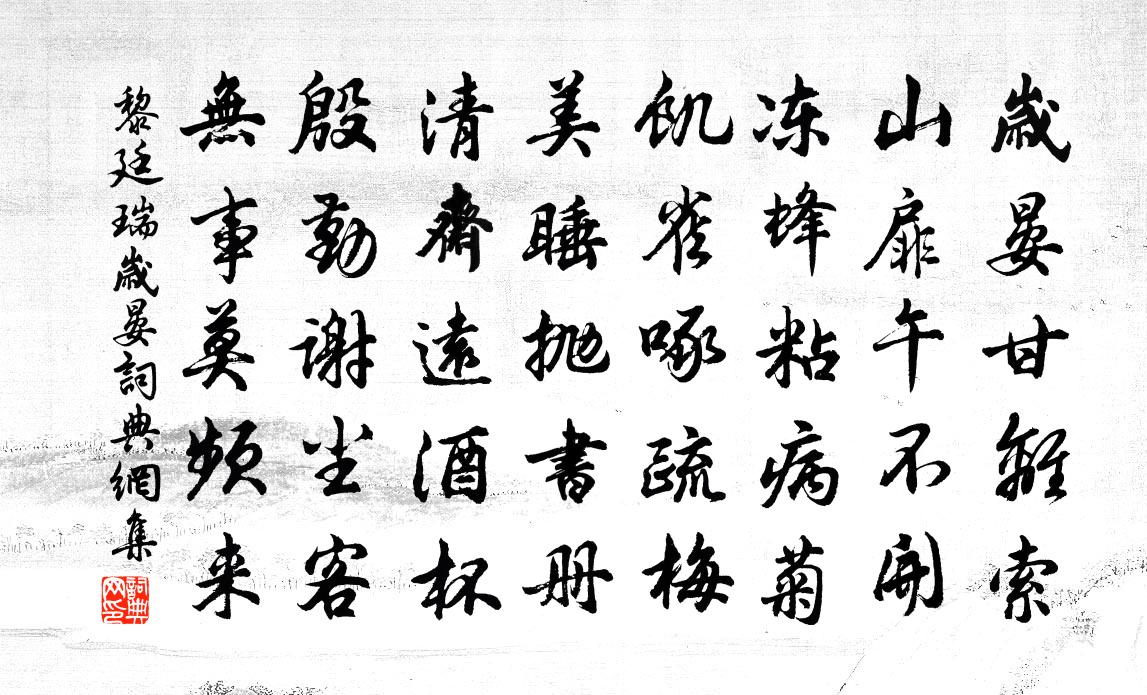 歲晏甘離索
山扉午不開
冻蜂粘病菊
飢雀啄疏梅
美睡抛書册
清齋遠酒杯
殷勤謝尘客
無事莫頻来
黎廷瑞歲晏詞典網集
詞典网印